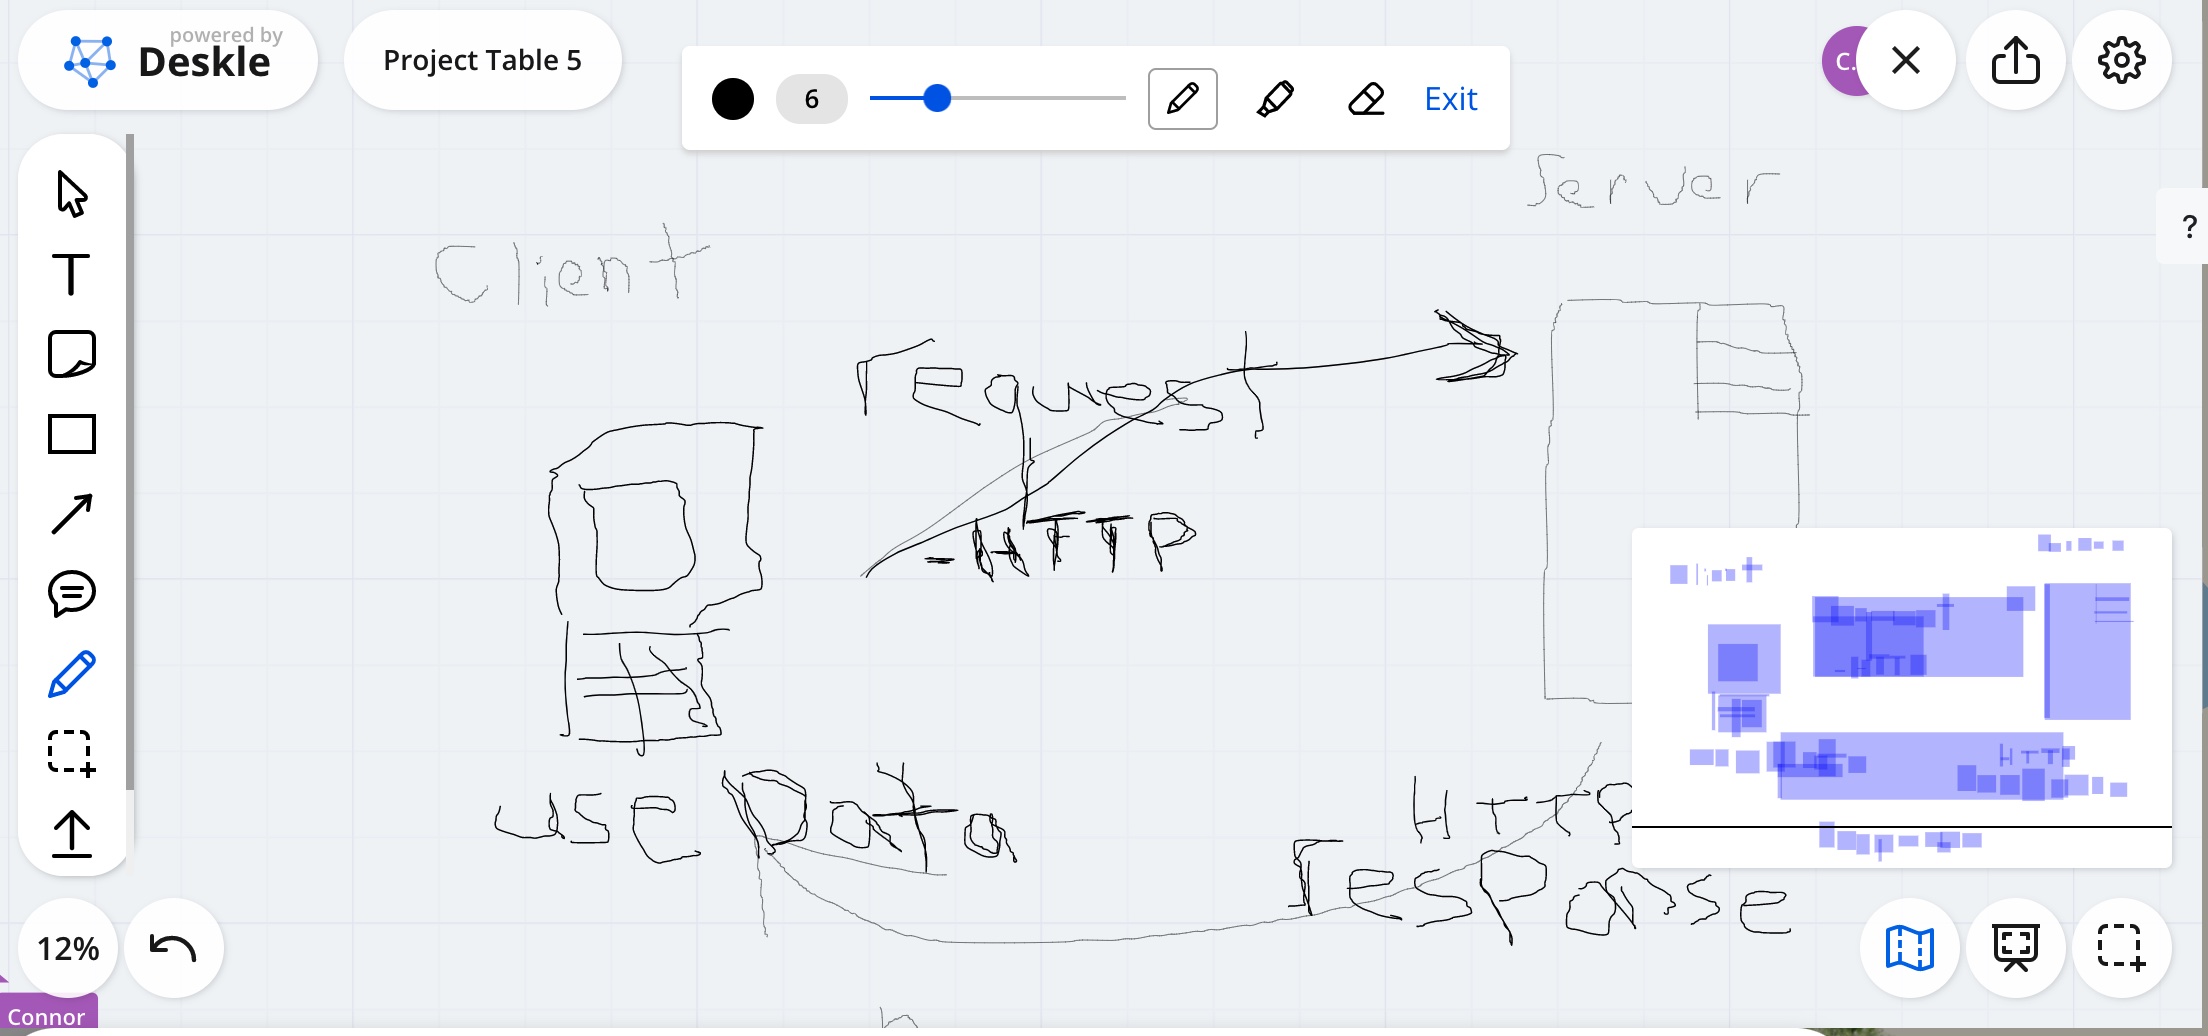 powered by
Deskle
Project Table 5
6
Exit
C.
?
Server
Client
request
-HTTP
use Data
HTTP
response
12%
Connor